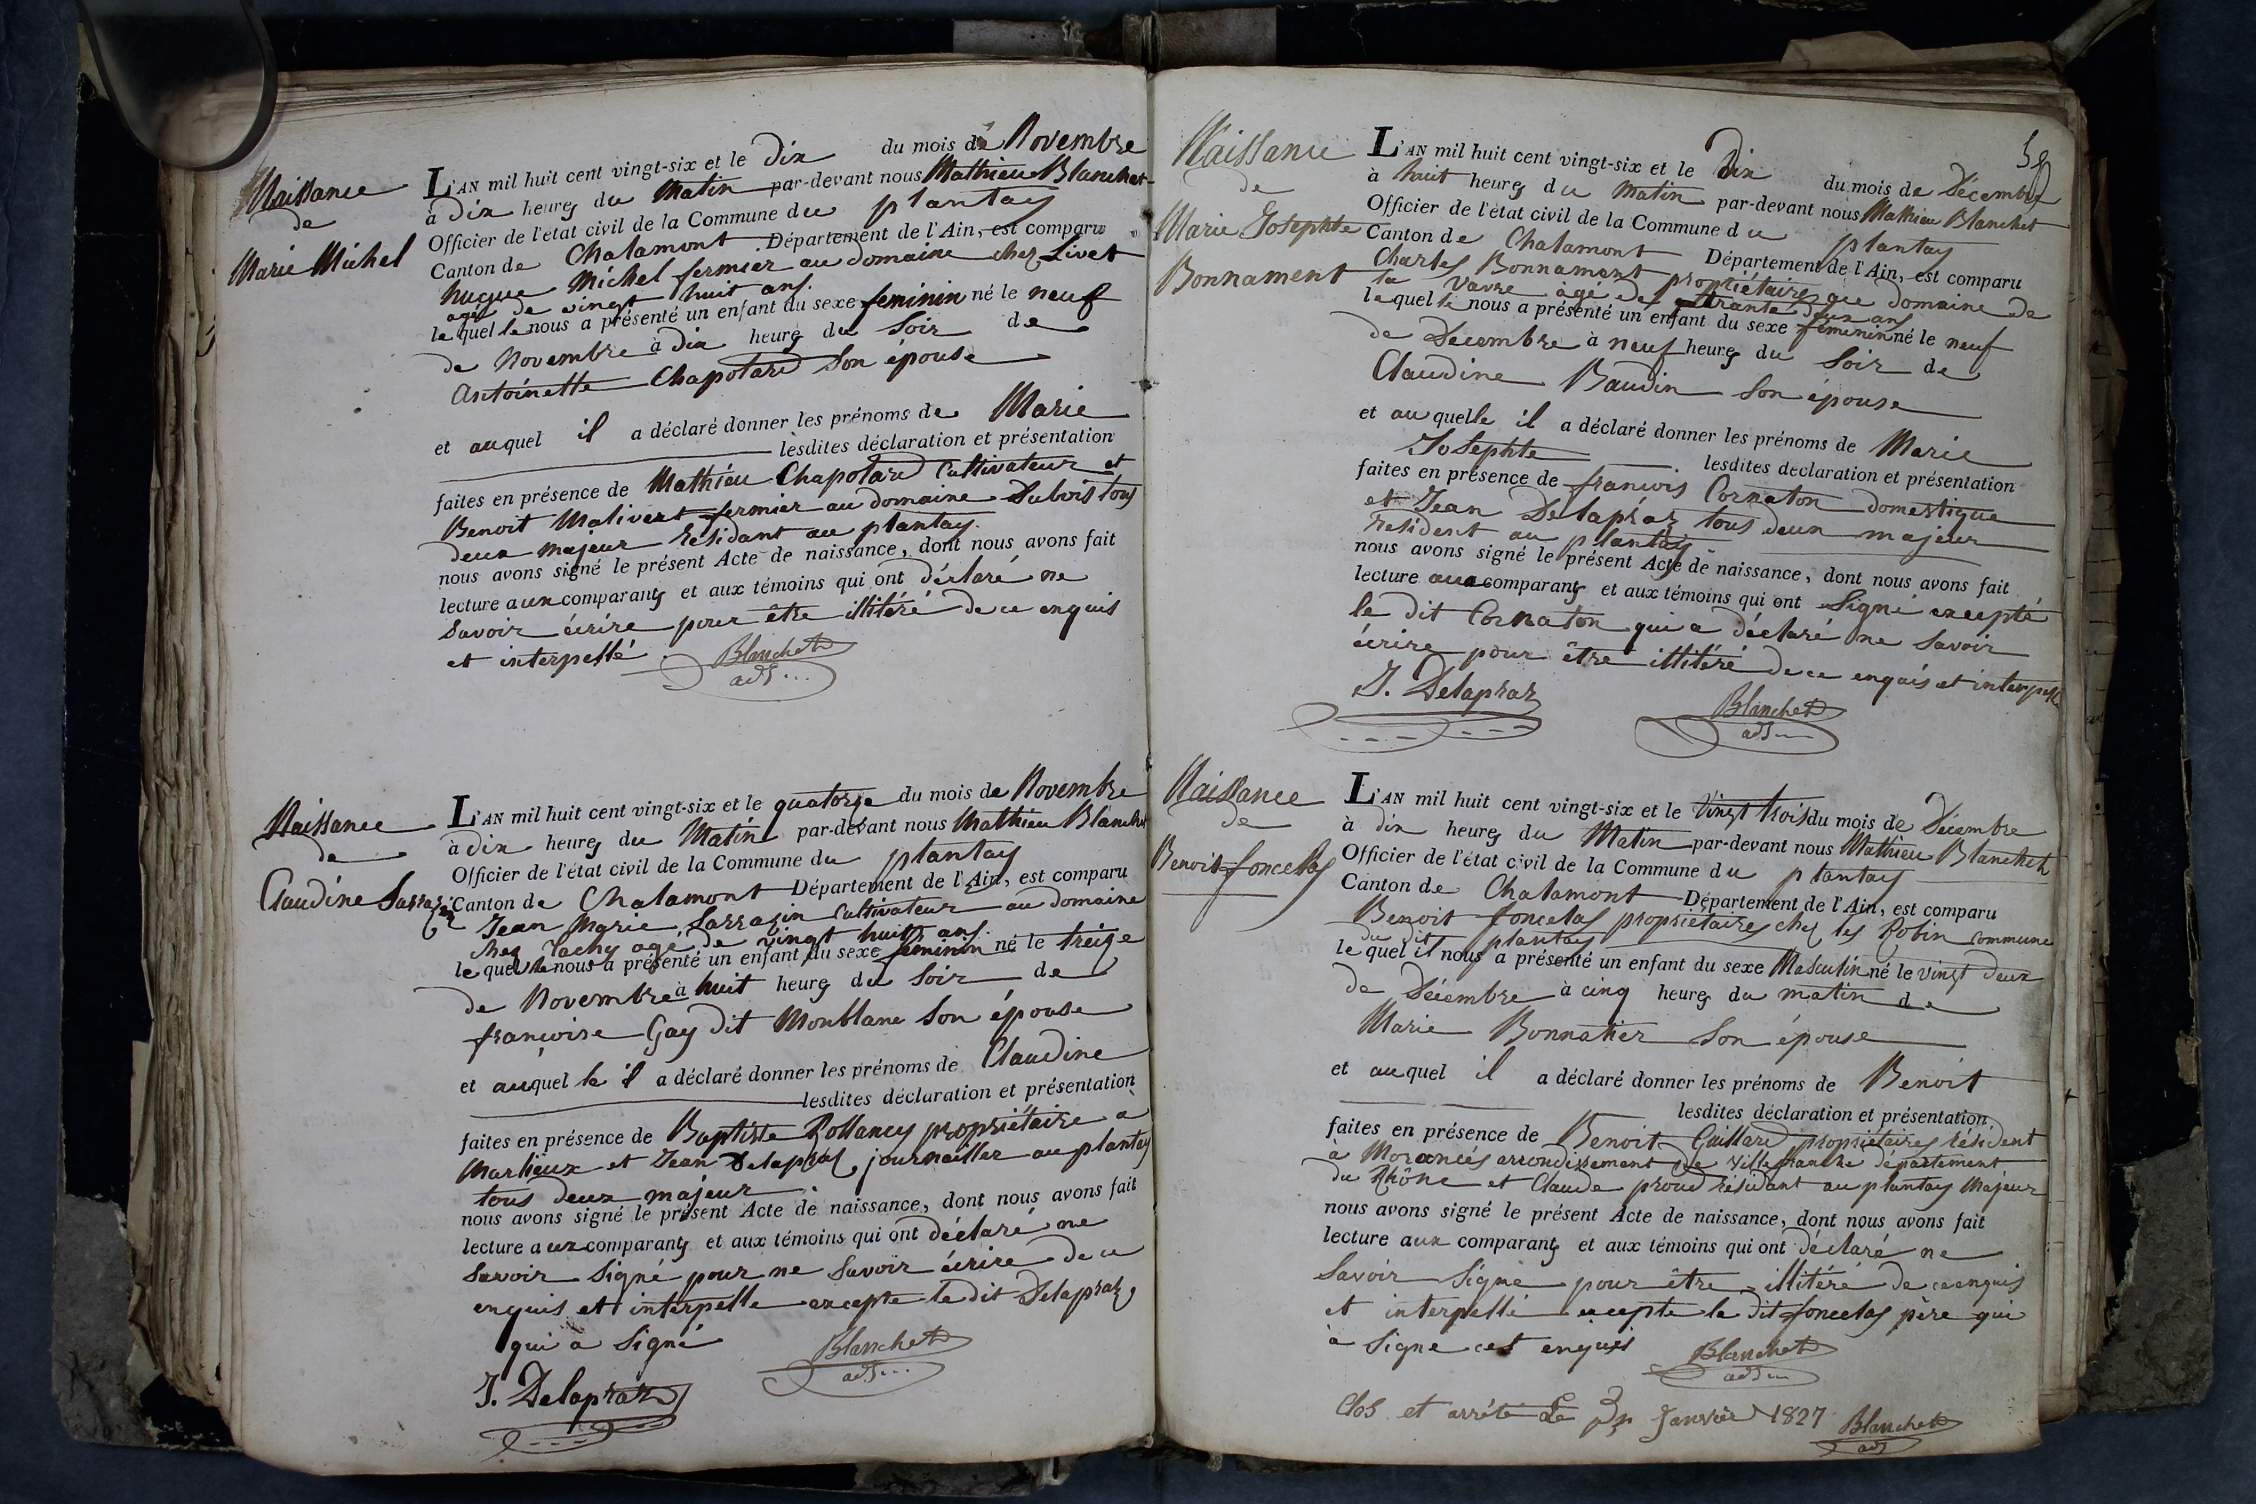 Naissance
de
Marie Michel
L'AN mil huit cent vingt-six et le dix du mois de Novembre
à dix heures du Matin par-devant nous Mathieu Blanchet
Officier de l'état civil de la Commune du plantay
Canton de Chalamont Département de l'Ain, est comparu
hugue Michel fermier au domaine chez Livet
agé de vingt huit ans.
lequel le nous a présenté un enfant du sexe feminin né le neuf
de Novembre à dix heures du Soir de
Antoinette Chapotard Son épouse
et auquel il a déclaré donner les prénoms de Marie
lesdites déclaration et présentation
faites en présence de Mathieu Chapotard Cultivateur et
Benoit Malivert fermier au domaine Dubois tous
deux majeur Résidant au plantay.
nous avons signé le présent Acte de naissance, dont nous avons fait
lecture aux comparants et aux témoins qui ont déclaré ne
Savoir écrire pour être illitéré de ce enquis
et interpellé.
Blanchet
adj...
Naissance
de
Claudine Sarrazin
L'AN mil huit cent vingt-six et le quatorze du mois de Novembre
à dix heures du Matin par-devant nous Mathieu Blanchet
Officier de l'état civil de la Commune du plantay
Canton de Chalamont Département de l'Ain, est comparu
Jean Marie Sarrazin Cultivateur au domaine
chez Tachy agé de vingt huit ans.
lequel le nous a présenté un enfant du sexe féminin né le treize
de Novembre à huit heures du Soir de
françoise Gay dit Monblanc Son épouse
et auquel le il a déclaré donner les prénoms de Claudine
lesdites déclaration et présentation
faites en présence de Baptiste Rollancy propriétaire a
Marlieux et Jean Delapraz journailler au plantay
tous deux majeur.
nous avons signé le présent Acte de naissance, dont nous avons fait
lecture aux comparants et aux témoins qui ont déclaré ne
Savoir Signé pour ne Savoir écrire de ce
enquis et interpelle excepte le dit Delapraz
qui a Signé
Blanchet
adj...
J. Delapraz
Naissance
de
Marie Josephte
Bonnament
L'AN mil huit cent vingt-six et le Dix du mois de Décembre
à huit heures du Matin par-devant nous Mathieu Blanchet
Officier de l'état civil de la Commune du plantay
Canton de Chalamont Département de l'Ain, est comparu
Charles Bonnament propriétaires au domaine de
la Vavre àgé de quarante deux ans
lequel le nous a présenté un enfant du sexe féminin né le neuf
de Decembre à neuf heures du Soir de
Claudine Baudin Son épouse
et auquelle il a déclaré donner les prénoms de Marie
Josephte lesdites declaration et présentation
faites en présence de françois Cornaton domestique
et Jean Delapraz tous deux majeur
résident au plantay
nous avons signé le présent Acte de naissance, dont nous avons fait
lecture aux comparants et aux témoins qui ont Signé excepté
le dit Cornaton qui a déclaré ne Savoir
écrire pour être illitéré de ce enquis et interpellé
J. Delapraz
Blanchet
adj...
Naissance
de
Benoit foncelas
L'AN mil huit cent vingt-six et le Vingt trois du mois de Décembre
à dix heures du Matin par-devant nous Mathieu Blanchet
Officier de l'état civil de la Commune du plantay
Canton de Chalamont Département de l'Ain, est comparu
Benoit foncelas propriétaires chez les Robin commune
du dit plantay
lequel il nous a présenté un enfant du sexe Masculin né le vingt deux
de Décembre à cinq heures du matin de
Marie Bonnatier Son épouse
et auquel il a déclaré donner les prénoms de Benoit
lesdites déclaration et présentation
faites en présence de Benoit Gaillard propriétaires résident
à Morancés arrondissement de Villefranche département
du Rhône et Claude proud résidant au plantay Majeur
nous avons signé le présent Acte de naissance, dont nous avons fait
lecture aux comparants et aux témoins qui ont déclaré ne
Savoir Signé pour être illitéré de ce enquis
et interpellé excepte le dit foncelas père qui
à Signe cet enquis
Blanchet
adj...
Clos et arrété Le Janvier 1827
Blanchet
adj